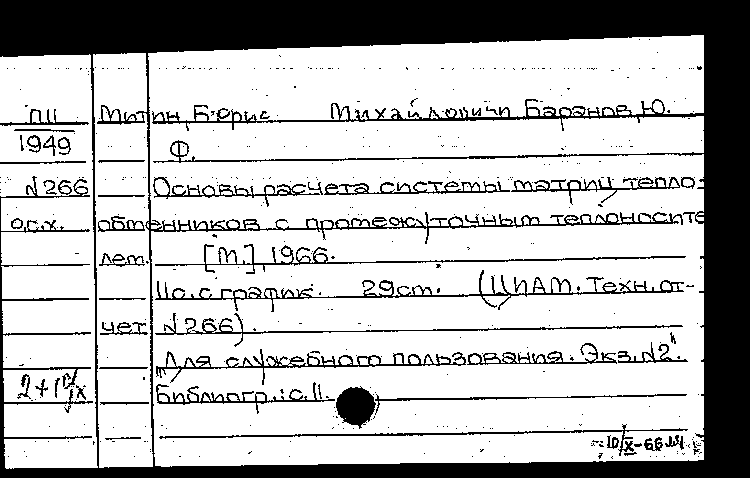 П11 Митин, Борис Михайлович и Баранов, Ю.
1949 Ф.
№266 Основы расчета системы матриц тепло-
о.с.х. обменников с промежуточным теплоносите
лем. [М.], 1966.
11с. с график. 29см. (ЦИАМ. Техн. от-
чет №266).
"Для служебного пользования. Экз. №2".
Библиогр.: с.11.
10/X-66